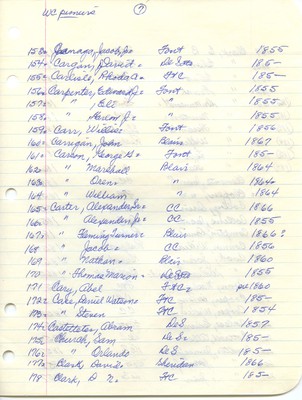 WC pioneers ⑦
153= Jacob, Font 1855
154= Cargan, De Soto 185-
155= Carlisle, Rhoda A= FtC 185-
156= Carpenter, Font 1855
157= " , Eli " 1855
158= " J= " 1855
159= Carr, Willis= Font 1856
160= Carrigan, John Blair 1867
161= Carson, George H= Font 185-
162= " Marshall Blair 1864
163= " Owen= " 1864
164= " William " 1864
165= Carter, Alexander Sr= CC 1866
166= " Alexander Jr= CC 1855
167= " Fleming Turner= Blair 1866?
168= " Jacob= CC 1856
169= " Nathan= Blair 1860
170 " Thomas Marion= De Soto 1855
171 Cary, Abel FtC= pre 1860
172= Case, Daniel Watson= FtC 185-
173= " Steven FtC 1854
174= Castetter, Abram DeS 1857
175= Church, Sam DeS= 185-
176= " Orlando DeS 185-
177= David= Sheridan 1866
178 Clark, D N= FtC 185-